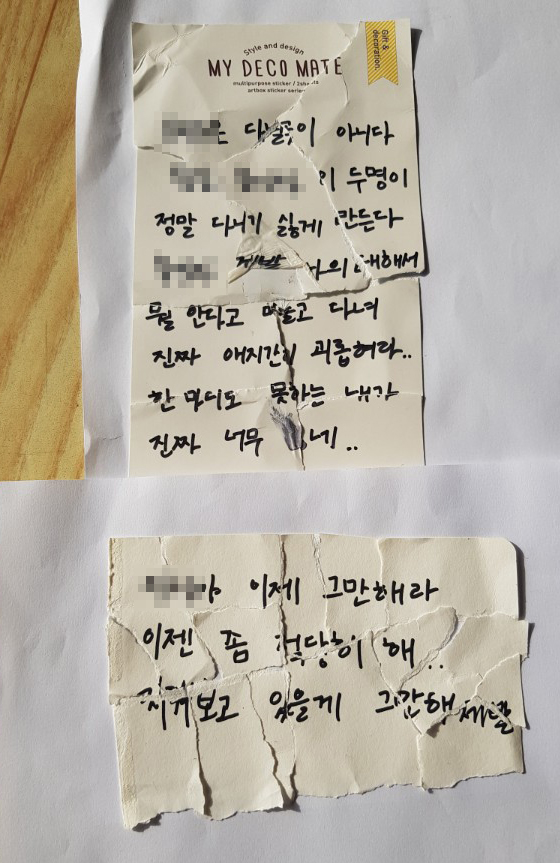 Style and design
MY DECO MATE
multipurpose sticker /
artbox sticker series
Gift &
decoration
아니다
이 두명이
정말 다니기 싫게 만든다
제발 대해서
뭘 안다고 다녀
진짜 애지간히 괴롭혀라..
한 마디도 못하는 내가
진짜 너무 네!..
야 이제 그만해라
이젠 좀 적당히 해..
지켜보고 있을게 그간해 제발